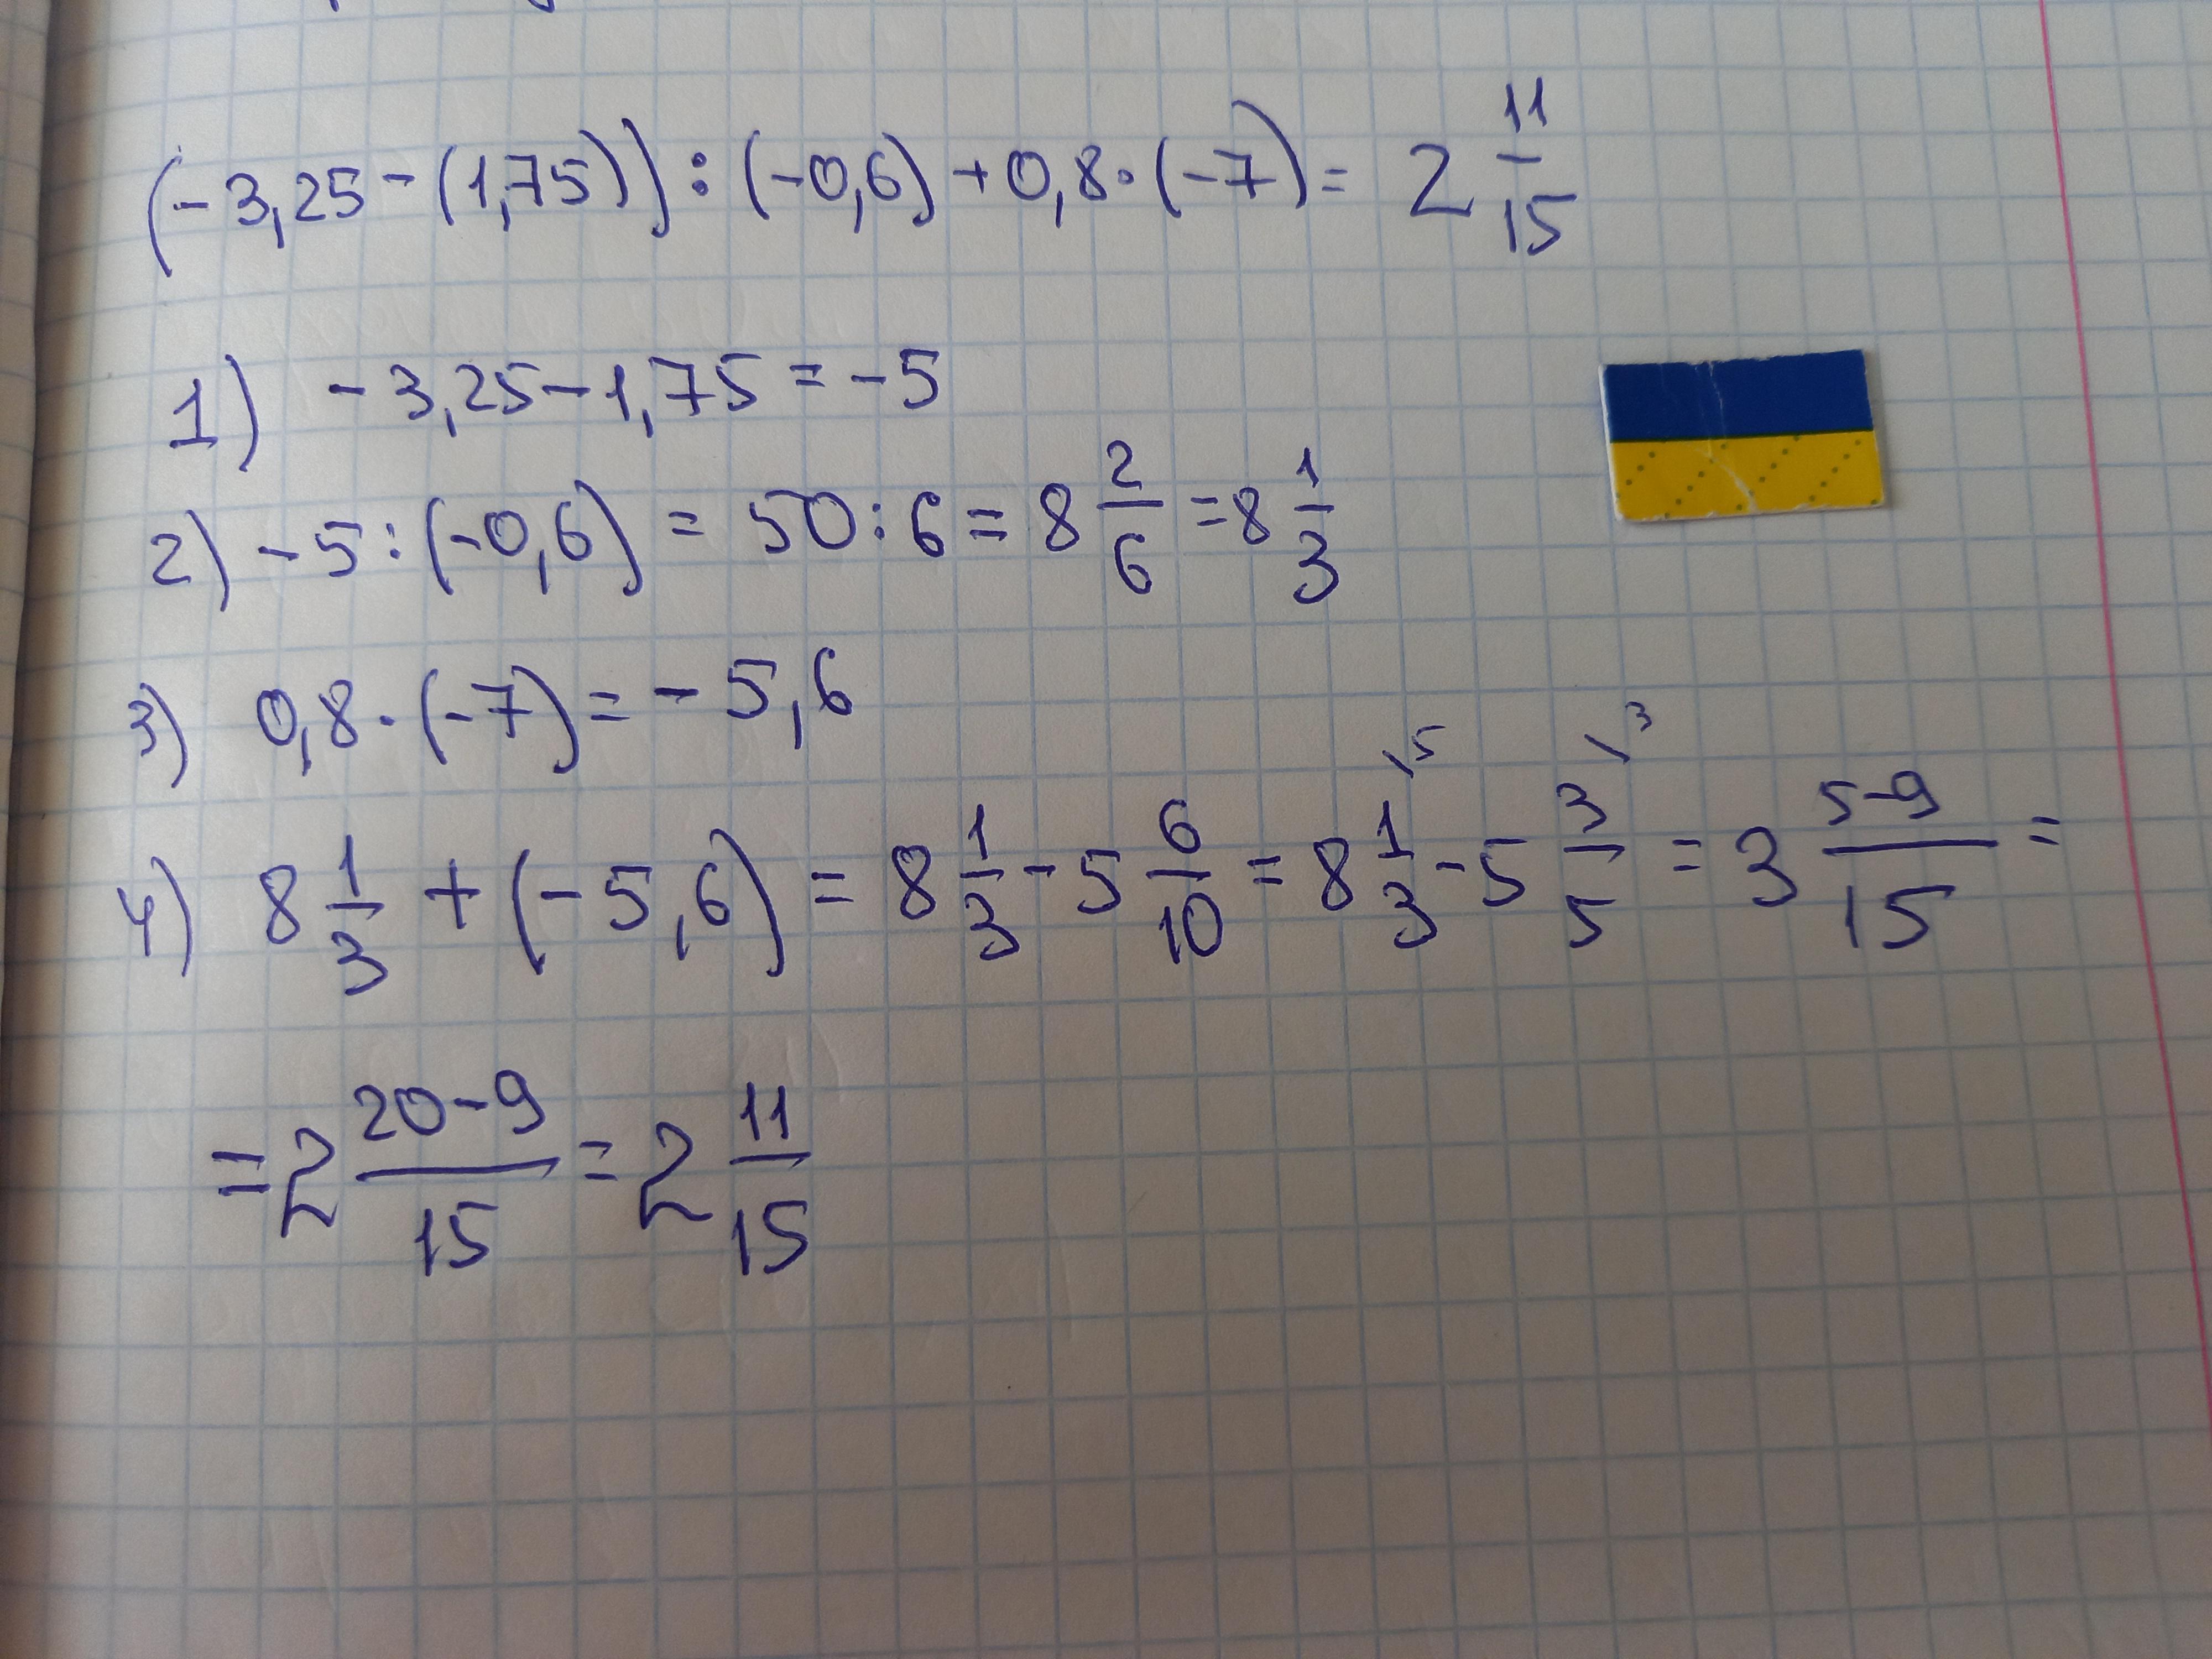 (-3,25-(1,75)):(-0,6)+0,8·(-7)= 2 11/15
1) -3,25-1,75=-5
2) -5:(-0,6)=50:6=8 2/6=8 1/3
3) 0,8·(-7)=-5,6
4) 8 1/3+(-5,6)=8 1/3-5 6/10=8 1/3\5-5 3/5\3=3 5-9/15=
=2 20-9/15=2 11/15